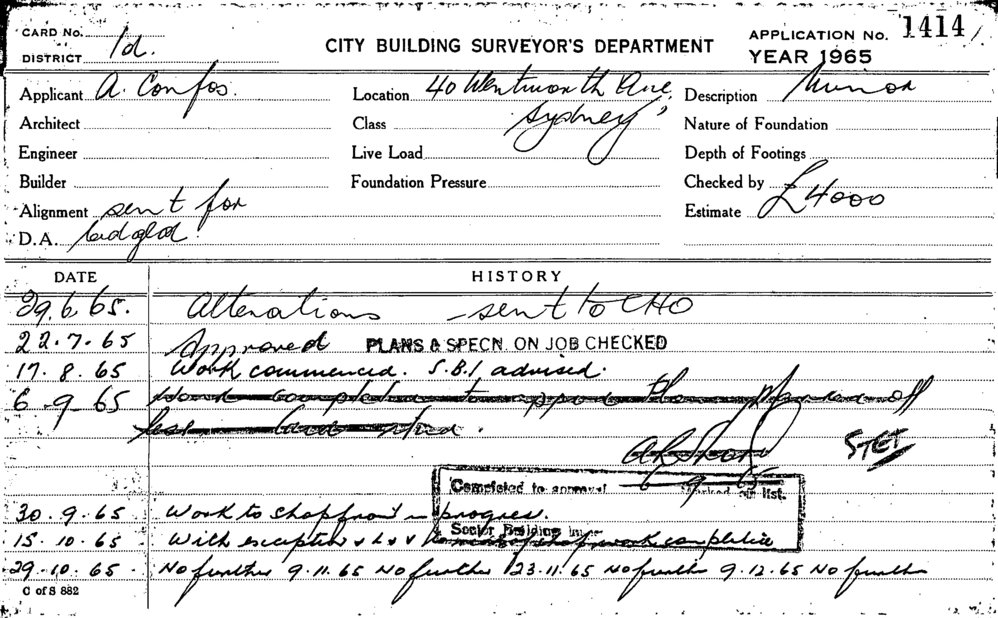 CARD No.
DISTRICT 1d.
CITY BUILDING SURVEYOR'S DEPARTMENT
APPLICATION No. 1414/
YEAR 1965
Applicant A. Confos.
Location 40 Wentworth Ave, Sydney
Description Minor
Architect
Class
Nature of Foundation
Engineer
Live Load
Depth of Footings
Builder
Foundation Pressure
Checked by
Alignment sent for
Estimate £4000
D.A.
DATE HISTORY
29.6.65. Alterations - sent to CHO
22.7.65 Approved PLANS & SPECN. ON JOB CHECKED
17.8.65 Work commenced. S.B.I advised.
6.9.65 Work completed to approval plans off
STET
6 9 65
Completed to approval Marked off list.
30.9.65 Work to shopfront in progress.
Senior Building
15.10.65 With exception of shop work complete
29.10.65 No further 9.11.65 No further 23.11.65 No further 9.12.65 No further
C of S 882